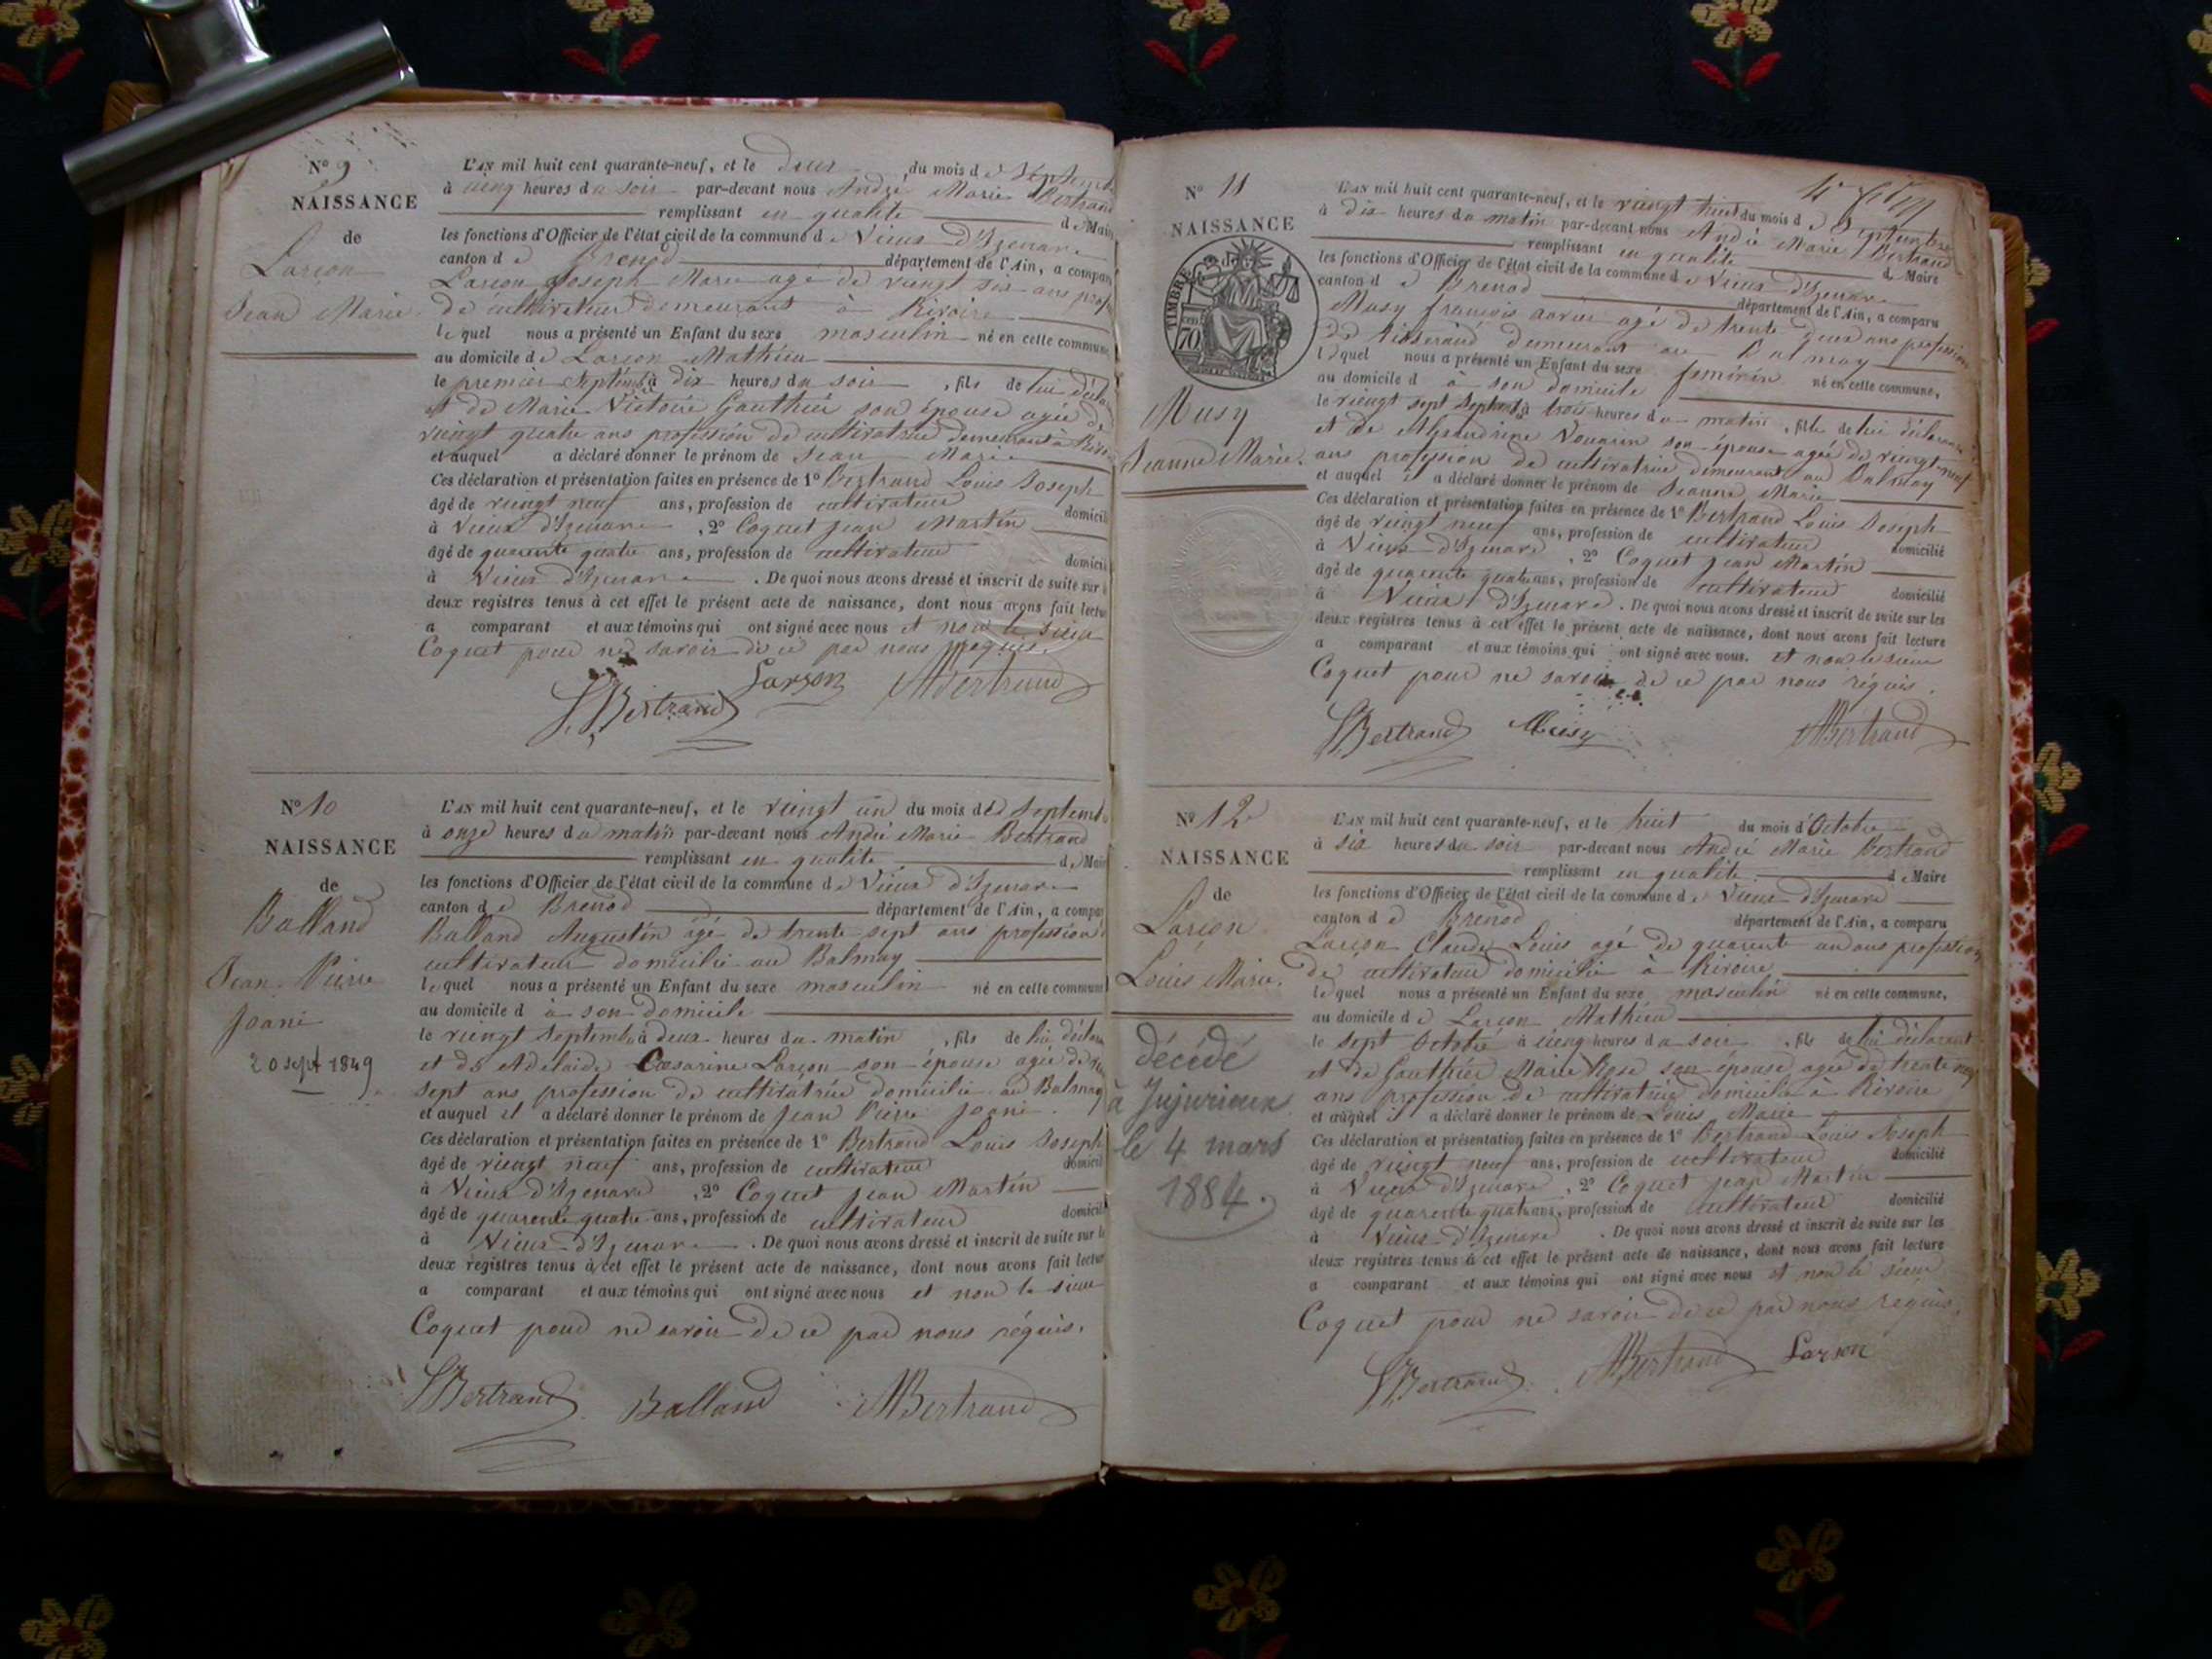 N° 9
NAISSANCE
de
Larçon
Jean Marie
L'AN mil huit cent quarante-neuf, et le deux du mois de Septembre
à cinq heures du soir par-devant nous André Marie Bertrand
remplissant en qualité de Maire
les fonctions d'Officier de l'état civil de la commune de Vieux d'Izenave
canton de Brenod département de l'Ain, a comparu
Larçon Joseph Marie agé de vingt six ans profession
de cultivateur demeurant à Rivoire
lequel nous a présenté un Enfant du sexe masculin né en cette commune,
au domicile de Larçon Mathieu
le premier Septembre à dix heures du soir, fils de lui déclarant
et de Marie Victoire Gauthier son épouse agée de
vingt quatre ans profession de cultivatrice demeurant à Rivoire
et auquel a déclaré donner le prénom de Jean Marie
Ces déclaration et présentation faites en présence de 1° Bertrand Louis Joseph
âgé de vingt neuf ans, profession de cultivateur domicilié
à Vieux d'Izenave, 2° Coquet Jean Martin
âgé de quarente quatre ans, profession de cultivateur domicilié
à Vieux d'Izenave. De quoi nous avons dressé et inscrit de suite sur les
deux registres tenus à cet effet le présent acte de naissance, dont nous avons fait lecture
a comparant et aux témoins qui ont signé avec nous et non le sieur
Coquet pour ne savoir de ce par nous requis.
LBertrand Larson AMBertrand
N° 10
NAISSANCE
de
Balland
Jean Pierre
Joani
20 sept 1849
L'AN mil huit cent quarante-neuf, et le vingt un du mois de Septembre
à onze heures du matin par-devant nous André Marie Bertrand
remplissant en qualité de Maire
les fonctions d'Officier de l'état civil de la commune de Vieux d'Izenave
canton de Brenod département de l'Ain, a comparu
Balland Augustin âgé de trente sept ans profession
cultivateur domicilié au Balmay
lequel nous a présenté un Enfant du sexe masculin né en cette commune
au domicile d à son domicile
le vingt Septembre à deux heures du matin, fils de lui déclarant
et de Adelaide Cæsarine Larçon son épouse agée de
sept ans profession de cultivatrice domicilié au Balmay
et auquel il a déclaré donner le prénom de Jean Pierre Joani.
Ces déclaration et présentation faites en présence de 1° Bertrand Louis Joseph
âgé de vingt neuf ans, profession de cultivateur domicilié
à Vieux d'Izenave, 2° Coquet Jean Martin
âgé de quarente quatre ans, profession de cultivateur domicilié
à Vieux d'Izenave. De quoi nous avons dressé et inscrit de suite sur les
deux registres tenus à cet effet le présent acte de naissance, dont nous avons fait lecture
a comparant et aux témoins qui ont signé avec nous et non le sieur
Coquet pour ne savoir de ce par nous réquis.
LBertrand Balland AMBertrand
N° 11
NAISSANCE
TIMBRE
70
Musy
Jeanne Marie.
L'AN mil huit cent quarante-neuf, et le vingt huit du mois de Septembre
à dix heures du matin par-devant nous André Marie Bertrand
remplissant en qualité de Maire
les fonctions d'Officier de l'état civil de la commune de Vieux d'Izenave
canton de Brenod département de l'Ain, a comparu
Musy françois agé de trente deux ans profession
de tisserand demeurant au Balmay
lequel nous a présenté un Enfant du sexe feminin né en cette commune,
au domicile d à son domicile
le vingt sept Septembre à trois heures du matin, fille de lui déclarant
et de Alexandrine son épouse agée de vingt-neuf
ans profession de cultivatrice demeurant au Balmay
et auquel il a déclaré donner le prénom de Jeanne Marie
Ces déclaration et présentation faites en présence de 1° Bertrand Louis Joseph
âgé de vingt neuf ans, profession de cultivateur domicilié
à Vieux d'Izenave, 2° Coquet Jean Martin
âgé de quarente quatre ans, profession de cultivateur domicilié
à Vieux d'Izenave. De quoi nous avons dressé et inscrit de suite sur les
deux registres tenus à cet effet le présent acte de naissance, dont nous avons fait lecture
a comparant et aux témoins qui ont signé avec nous. et non le sieur
Coquet pour ne savoir de ce par nous réquis.
LBertrand Musy AMBertrand
N° 12
NAISSANCE
de
Larçon
Louis Marie.
décédé
à Jujurieux
le 4 mars
1884.
L'AN mil huit cent quarante-neuf, et le huit du mois d'Octobre
à six heures du soir par-devant nous André Marie Bertrand
remplissant en qualité de Maire
les fonctions d'Officier de l'état civil de la commune de Vieux d'Izenave
canton de Brenod département de l'Ain, a comparu
Larçon Claude Louis agé de quarente un ans profession
de cultivateur domicilié à Rivoire
lequel nous a présenté un Enfant du sexe masculin né en cette commune,
au domicile de Larçon Mathieu
le sept Octobre à cinq heures du soir, fils de lui déclarant
et de Gauthier Marie Rose son épouse agée de trente neuf
ans profession de cultivatrice domicilié à Rivoire
et auquel il a déclaré donner le prénom de Louis Marie
Ces déclaration et présentation faites en présence de 1° Bertrand Louis Joseph
âgé de vingt neuf ans, profession de cultivateur domicilié
à Vieux d'Izenave, 2° Coquet Jean Martin
âgé de quarente quatre ans, profession de cultivateur domicilié
à Vieux d'Izenave. De quoi nous avons dressé et inscrit de suite sur les
deux registres tenus à cet effet le présent acte de naissance, dont nous avons fait lecture
a comparant et aux témoins qui ont signé avec nous et non le sieur
Coquet pour ne savoir de ce par nous requis.
LBertrand AMBertrand Larson